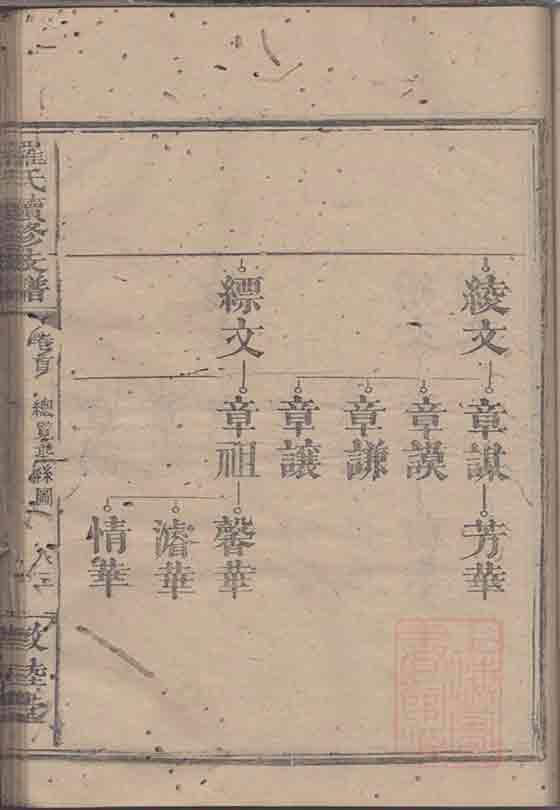 綾文
縹文
章謀
章謨
章謙
章讓
章祖
芳華
馨華
濬華
情華
羅氏續修支譜
卷首
總圖
敦睦堂